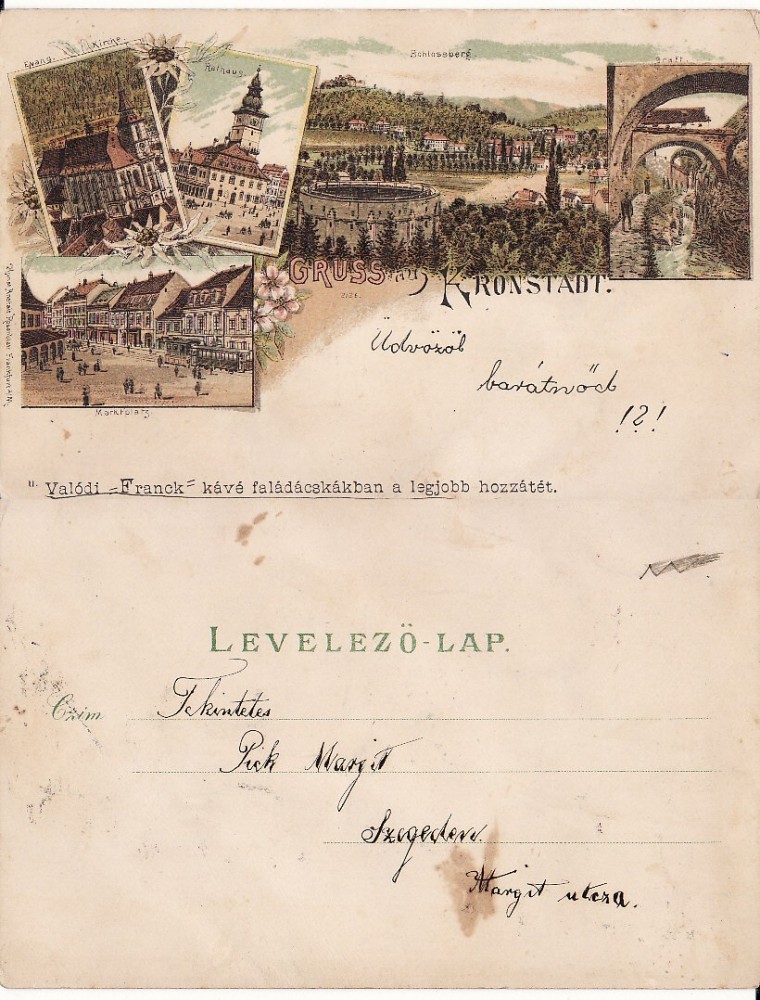 Evang. Kirche.
Rathaus.
Schlossberg.
Graft.
GRUSS aus KRONSTADT.
2126.
Marktplatz.
Üdvözöl
barátnőd
!?!
". Valódi „Franck" kávé faládácskákban a legjobb hozzátét.
LEVELEZŐ-LAP.
Czim
Tekintetes
Pick Margit
Szegeden.
Margit utcza.